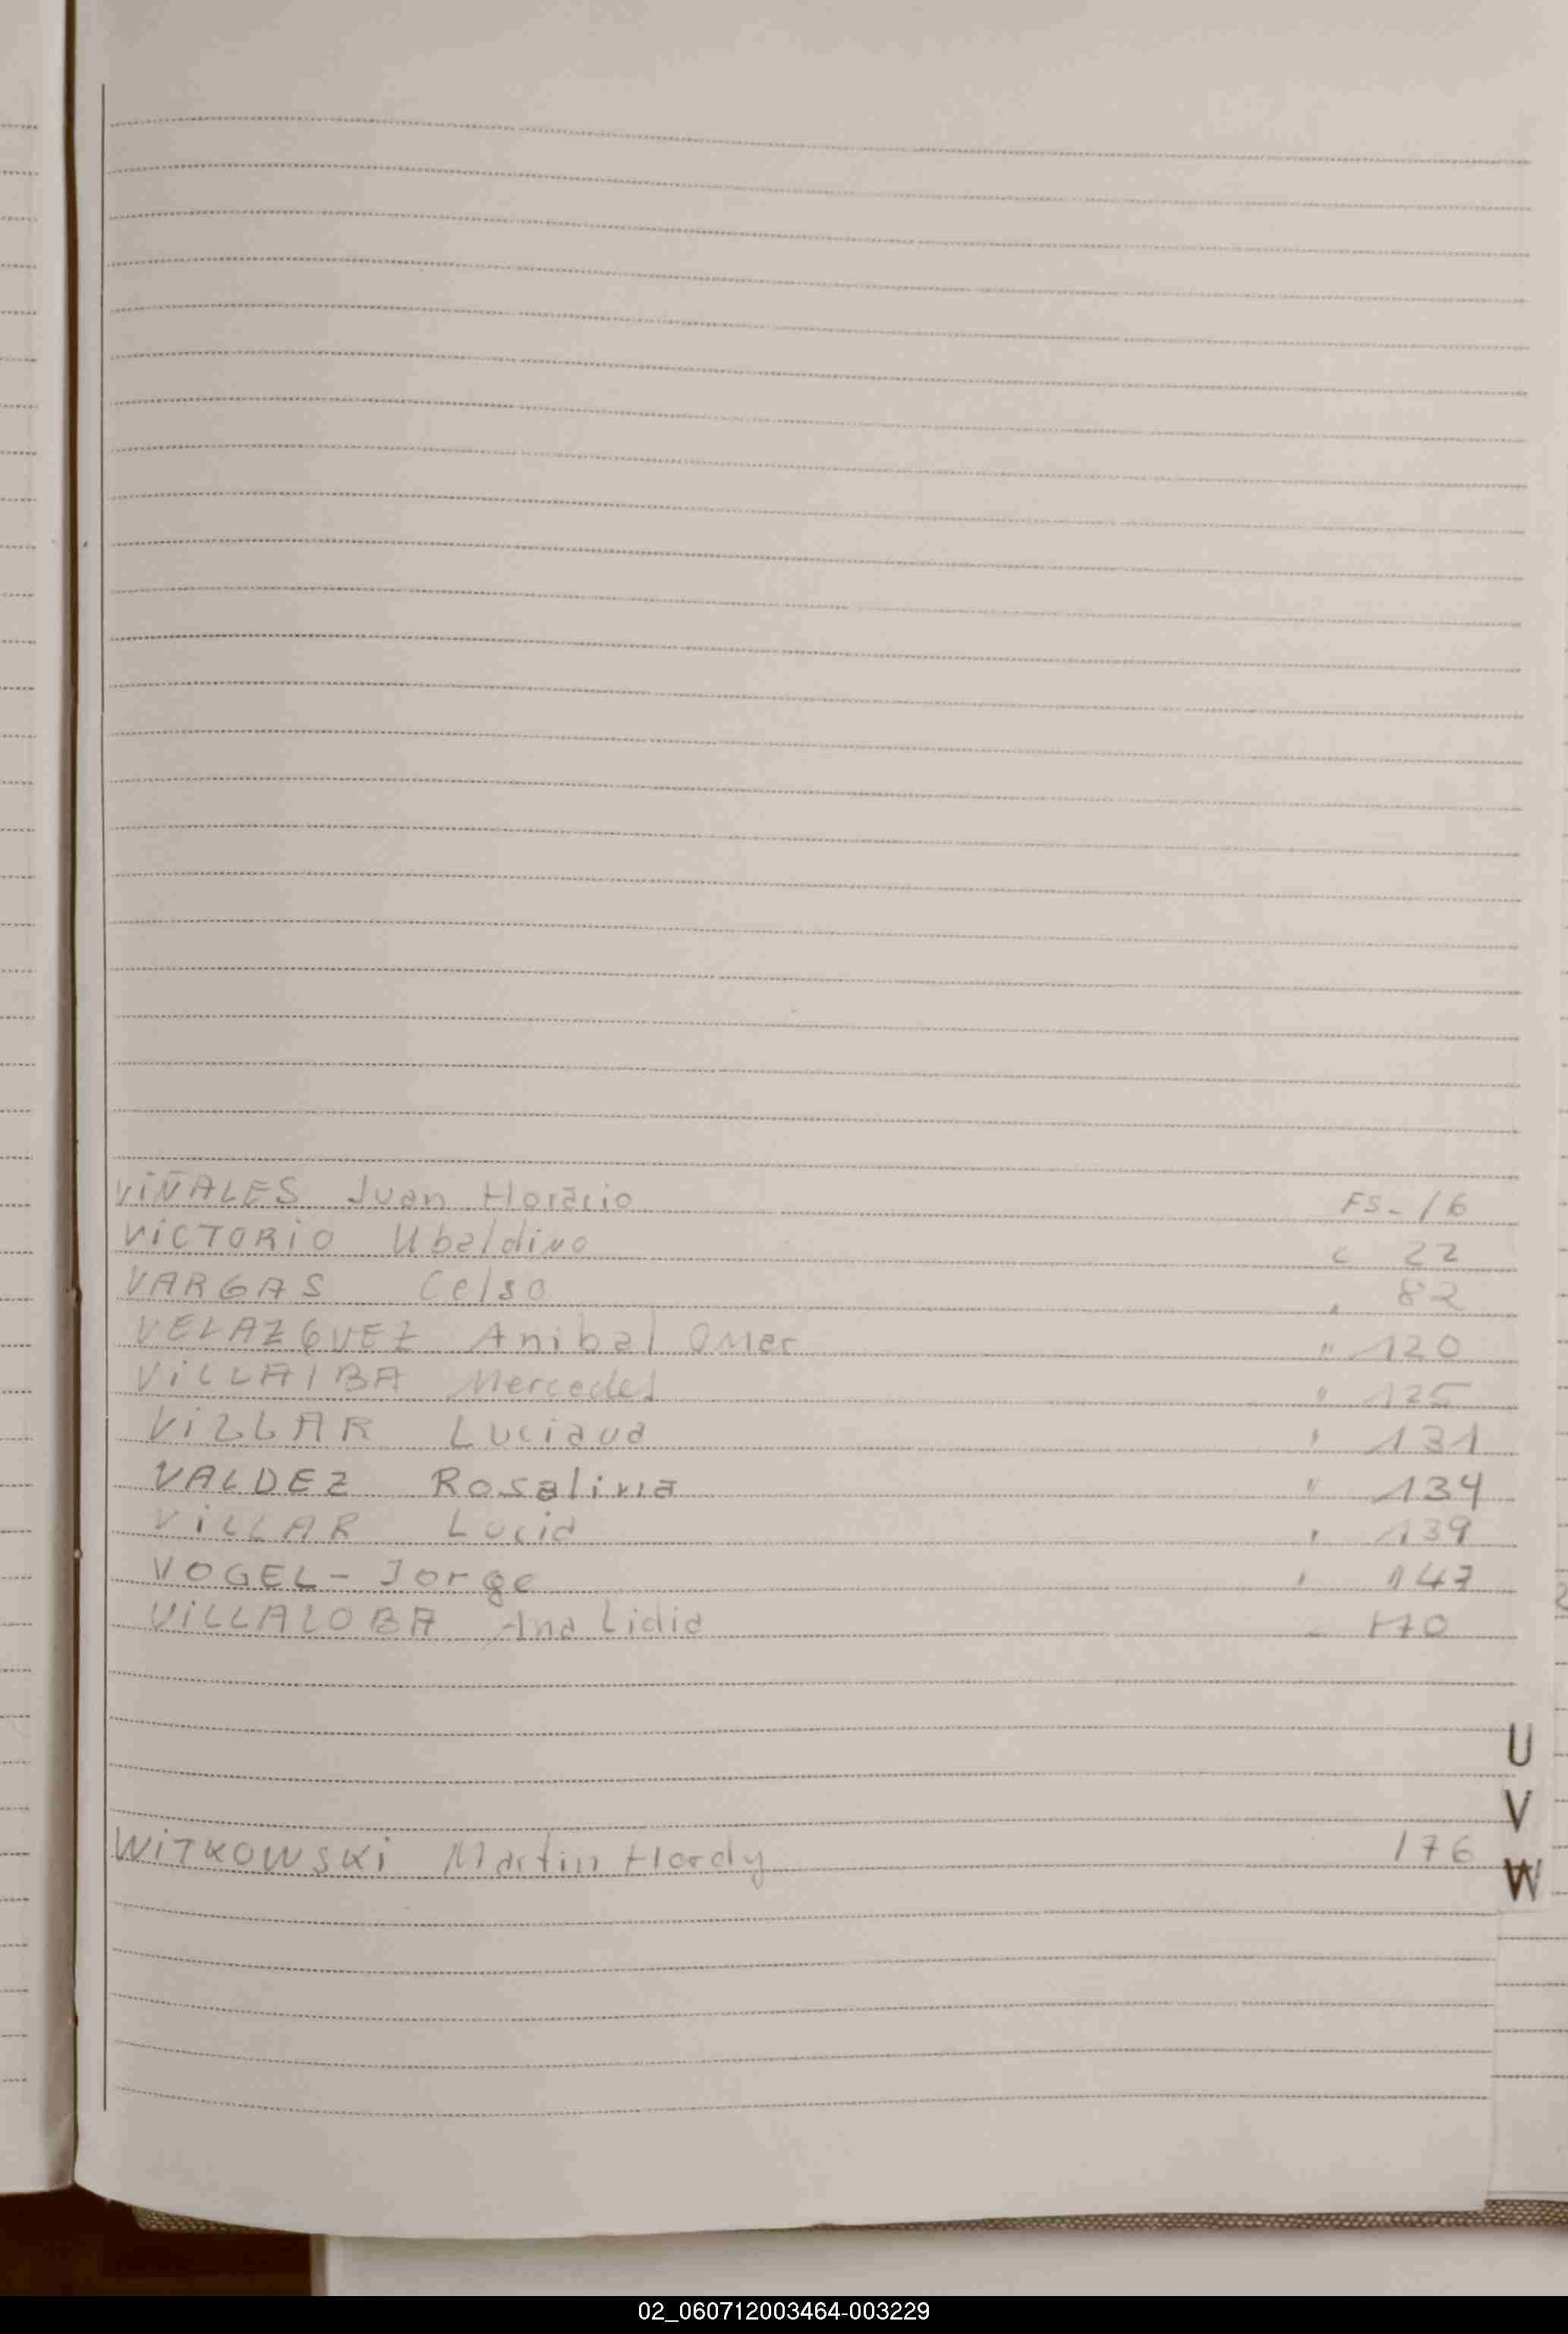 VIÑALES Juan Horacio FS- 16
VICTORIO Ubaldino " 22
VARGAS Celso " 82
VELAZQUEZ Anibal Omar " 120
VILLALBA Mercedes " 125
VILLAR Luciana " 131
VALDEZ Rosalina " 134
VILLAR Lucia " 139
VOGEL - Jorge " 147
VILLALOBA Ana Lidia - 170
U
V
WITKOWSKI Martin Hardy 176
W
02_060712003464-003229